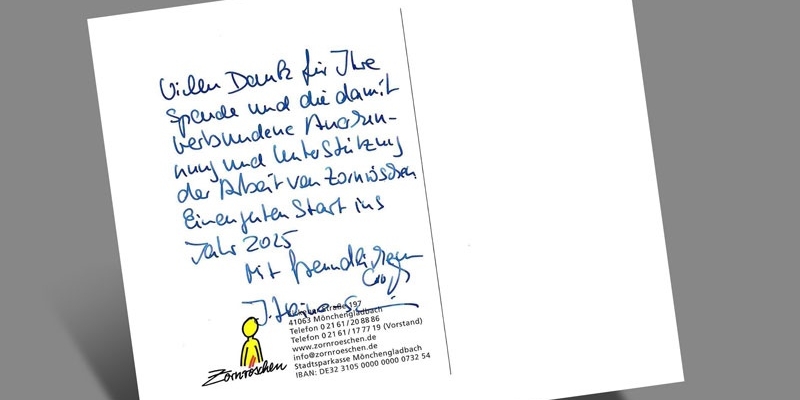 Vielen Dank für Ihre
Spende und die damit
verbundene Anerken-
nung und Unterstützung
der Arbeit von Zornröschen
Einen guten Start ins
Jahr 2025
Mit freundlichem
Gruß
41063 Mönchengladbach
Telefon 0 21 61 / 20 88 86
Telefon 0 21 61 / 17 77 19 (Vorstand)
www.zornroeschen.de
info@zornroeschen.de
Stadtsparkasse Mönchengladbach
IBAN: DE32 3105 0000 0000 0732 54
Zornröschen